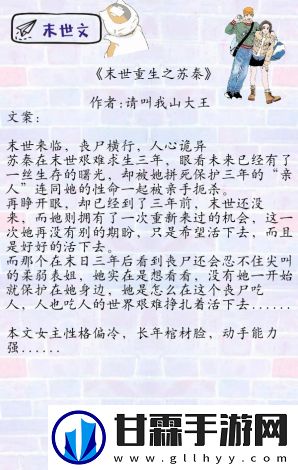 末世文
《末世重生之苏秦》
作者:请叫我山大王
文案:
末世来临,丧尸横行,人心诡异
苏秦在末世艰难求生三年,眼看未来已经有了
一丝生存的曙光,却被她拼死保护三年的“亲
人”连同她的性命一起被亲手扼杀。
再睁开眼,却已经到了三年前,末世还没
来,而她则拥有了一次重新来过的机会,这一
次她再没有别的期盼,只是希望活下去,而且
是好好的活下去。
而那个在末日三年后看到丧尸还会忍不住尖叫
的柔弱表姐,她实在是想看看,没有她一开始
就保护在她身边,她是怎么在这个丧尸吃
人,人也吃人的世界艰难挣扎着活下去......
本文女主性格偏冷,长年棺材脸,动手能力
强......
甘霖手游网
www.gllhyy.com